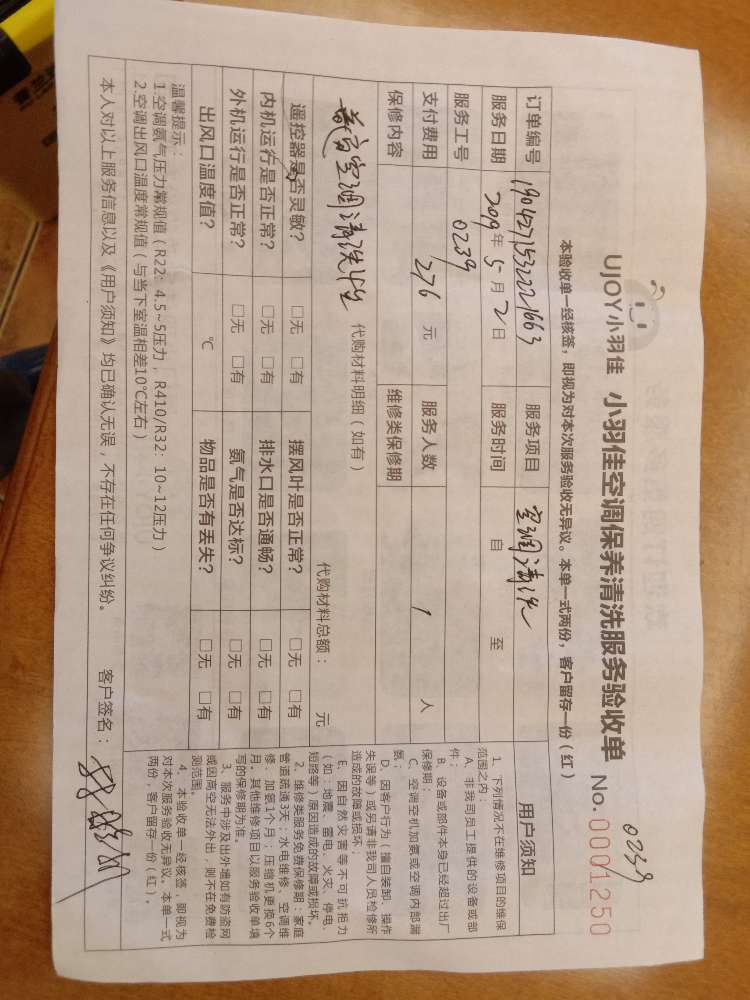 UJOY小羽佳 小羽佳空调保养清洗服务验收单 No.0001250
0239
本验收单一经核签，即视为对本次服务验收无异议。本单一式两份，客户留存一份（红）
订单编号 服务项目 空调清洗
服务日期 2019年5月2日 服务时间 自 至
服务工号 0239
支付费用 276 元 服务人数 1 人
保修内容 维修类保修期
代购材料明细（如有） 代购材料总额： 元
空调清洗
遥控器是否灵敏？ □无 □有 摆风叶是否正常？ □无 □有
内机运行是否正常？ □无 □有 排水口是否通畅？ □无 □有
外机运行是否正常？ □无 □有 氨气是否达标？ □无 □有
出风口温度值？ ℃ 物品是否有丢失？ □无 □有
温馨提示：
1.空调氨气压力常规值（R22：4.5~5压力，R410/R32：10~12压力）
2.空调出风口温度常规值（与当下室温相差10℃左右）
本人对以上服务信息以及《用户须知》均已确认无误，不存在任何争议纠纷。 客户签名：
用户须知
1、下列情况不在维修项目的维保
范围之内：
A、非我司员工提供的设备或部
件；
B、设备或部件本身已经超过出厂
保修期；
C、空调空机加氨或空调内部漏
氨；
D、因客户行为（擅自装卸、操作
失误等）或另请非我司人员检修所
造成的故障或损坏；
E、因自然灾害等不可抗拒力
（如：地震、雷电、火灾、停电、
短路等）原因造成的故障或损坏。
2、维修类服务免费保修期：家庭
管道疏通3天；水电维修、空调维
修、加氨1个月；压缩机更换6个
月；其他维修项目以服务验收单填
写的保修期为准。
3、服务中涉及出外墙如有防盗网
或因高空无法外出，则不在免费检
测范围。
4、本验收单一经核签，即视为
对本次服务验收无异议。本单一式
两份，客户留存一份（红）。